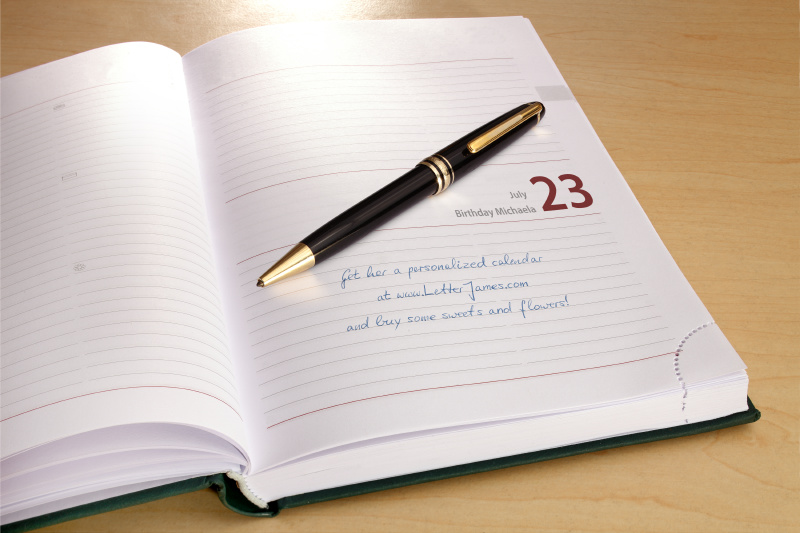 July 23
Birthday Michaela
Get her a personalized calendar
at www.LetterJames.com
and buy some sweets and flowers!